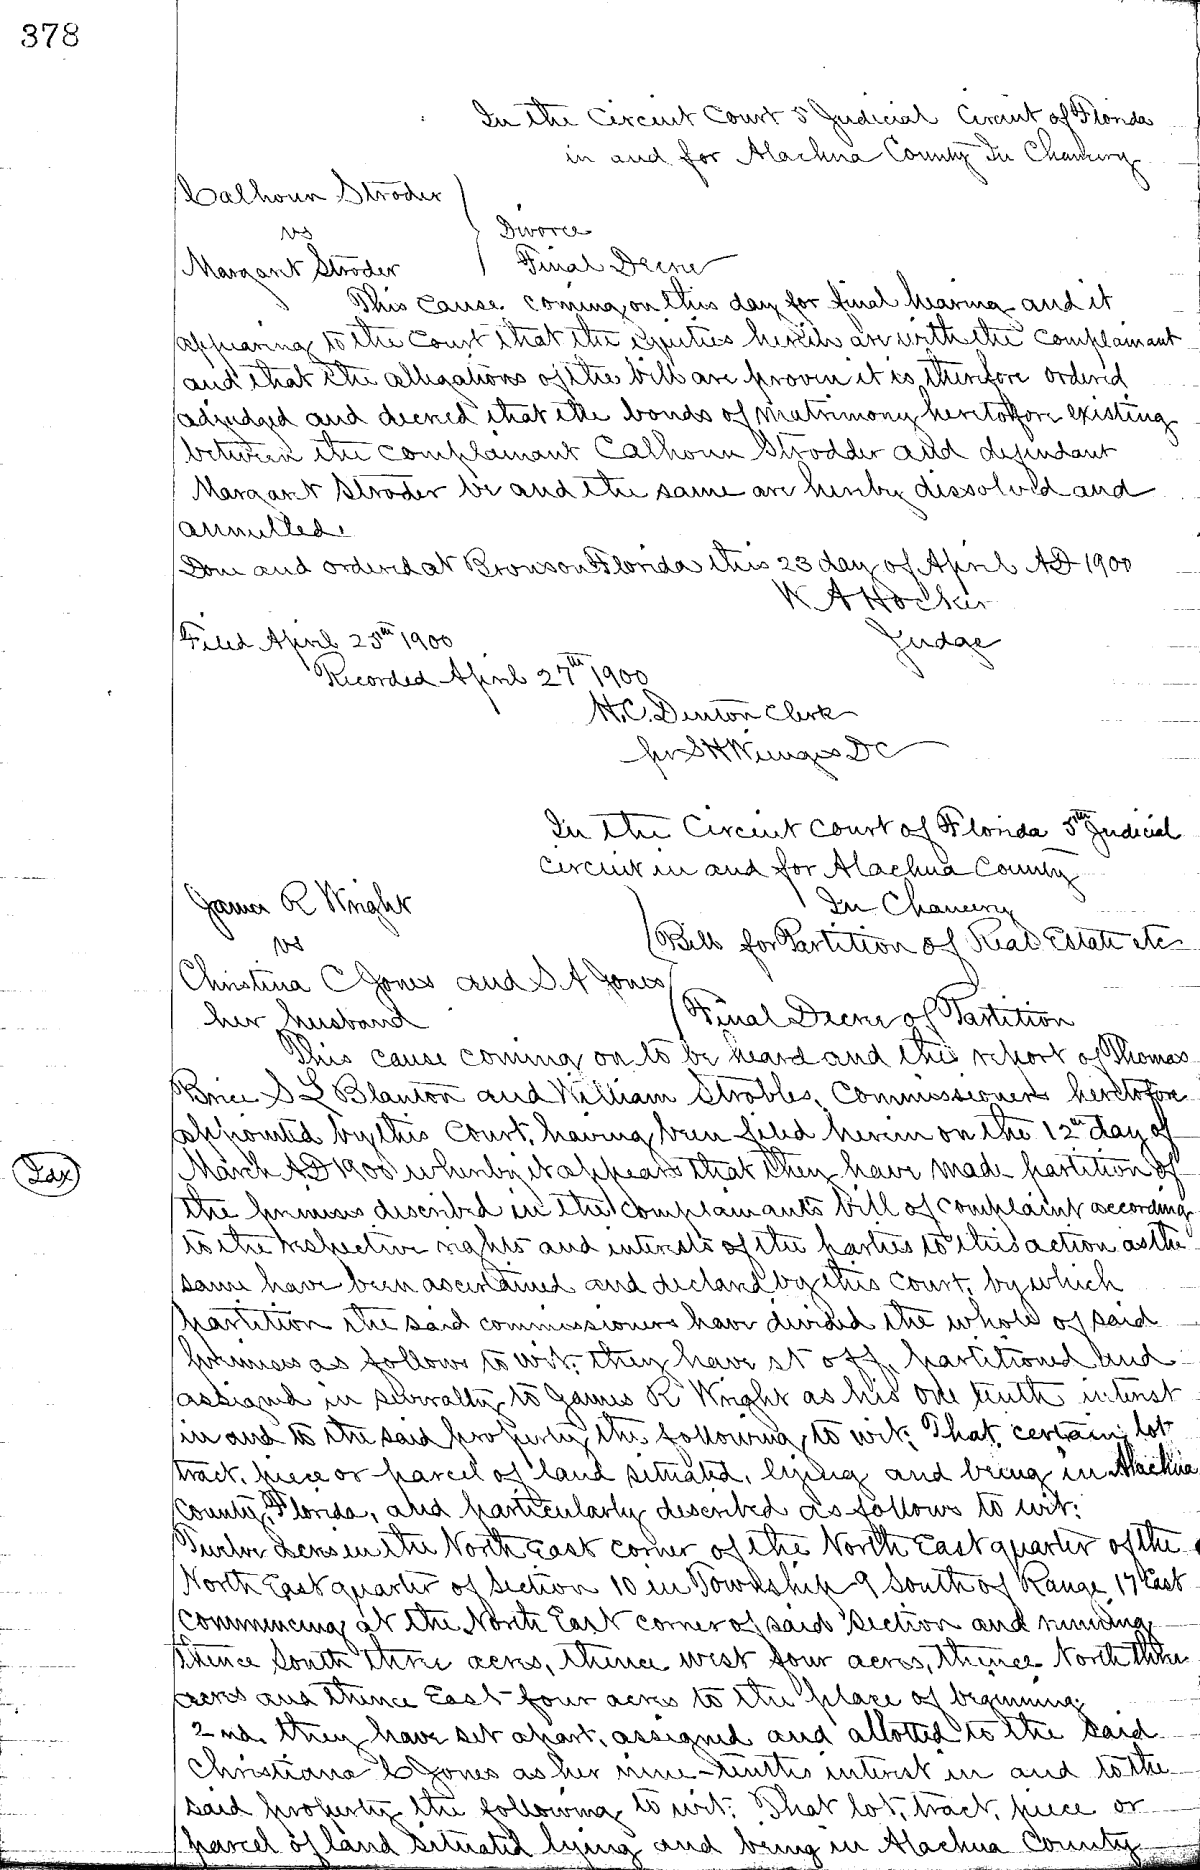 378
In the Circuit Court 5 Judicial Circuit of Florida
in and for Alachua County In Chancery
Calhoun Stroder
vs
Divorce
Margaret Stroder
Final Decree
This cause coming on this day for final hearing and it
appearing to the Court that the equities herein are with the complainant
and that the allegations of the bill are proven it is therefore ordered
adjudged and decreed that the bonds of matrimony heretofore existing
between the complainant Calhoun Strodder and defendant
Margaret Stroder be and the same are hereby dissolved and
annulled.
Done and ordered at Bronson Florida this 23 day of April AD 1900
W A Hocker
Judge
Filed April 25th 1900
Recorded April 27th 1900
H.C. Denton Clerk
per S H Wienges DC
In the Circuit Court of Florida 5th Judicial
Circuit in and for Alachua County
James R Wright
In Chancery
vs
Bill for Partition of Real Estate etc
Christina C Jones and S. A Jones
her husband
Final Decree of Partition
This cause coming on to be heard and the report of Thomas
Brice S L Blanton and William Strobles, Commissioners heretofore
appointed by this Court, having been filed herein on the 12th day of
March AD 1900 whereby it appears that they have made partition of
the premises described in the complainants bill of complaint according
to the respective rights and interests of the parties to this action as the
same have been ascertained and declared by this Court, by which
partition the said commissioners have divided the whole of said
premises as follows to wit: they have set off, partitioned and
assigned in severalty to James R Wright as his one tenth interest
in and to the said property the following to wit: That certain lot
tract, piece or parcel of land situated, lying and being in Alachua
County, Florida, and particularly described as follows to wit:
Twelve acres in the North East corner of the North East quarter of the
North East quarter of Section 10 in Township 9 South of Range 17 East
Commencing at the North East corner of said Section and running
thence South three acres, thence west four acres, thence North three
acres and thence East four acres to the place of beginning;
2nd. they have set apart, assigned and allotted to the said
Christiana C Jones as her nine-tenths interest in and to the
said property the following to wit: That lot, tract, piece or
parcel of land situated lying and being in Alachua County